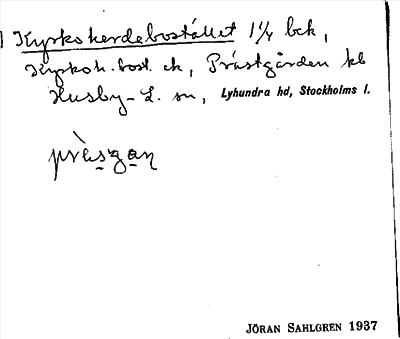 Kyrkoherdebostället 1 1/4 bck,
Kyrkoh.bost. ek, Prästgården kb
Husby-L. sn, Lyhundra hd, Stockholms l.
JÖRAN SAHLGREN 1937